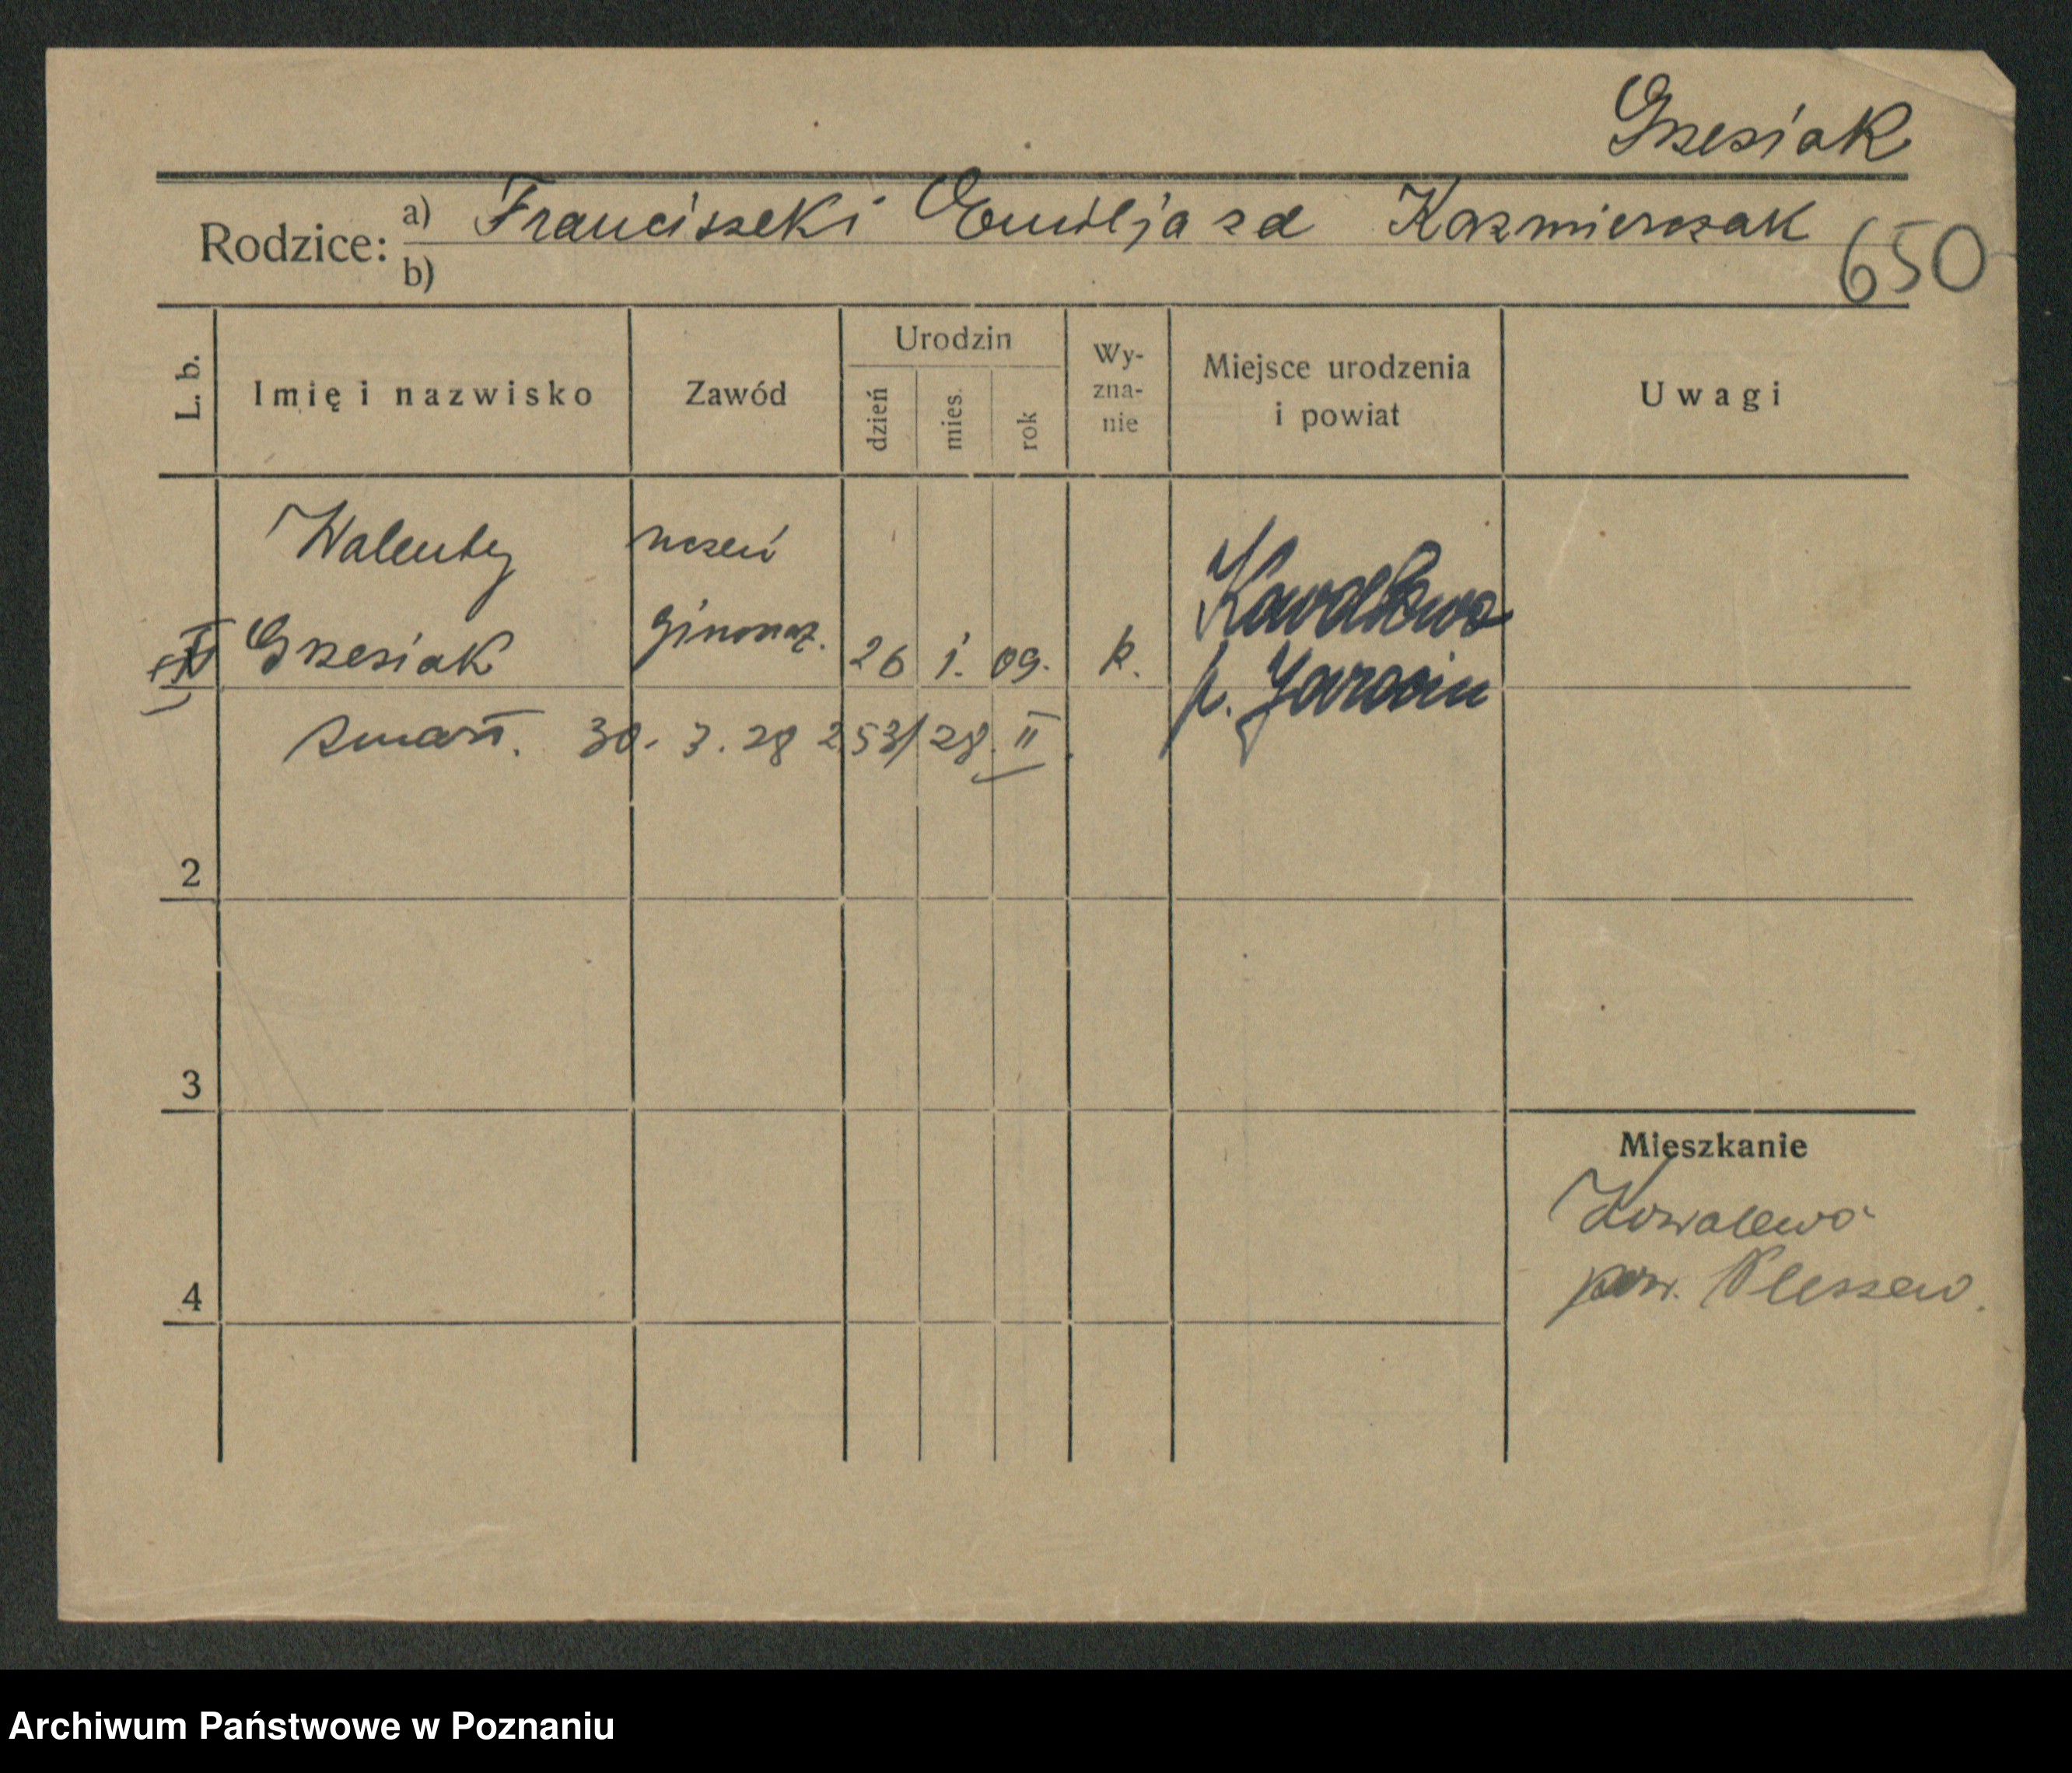 Grzesiak
Rodzice: a) Franciszek i Emilja zd Kaźmierczak
b)
650
L. b. Imię i nazwisko Zawód Urodzin dzień mies. rok Wy-zna-nie Miejsce urodzenia i powiat Uwagi
Walenty uczeń
Grzesiak gimnaz. 26 i. 09. k.
p. Jarocin
zmarł. 30. 3. 28 253/28 II
2
3
Mieszkanie
Kowalewo
pow. Pleszew.
4
Archiwum Państwowe w Poznaniu